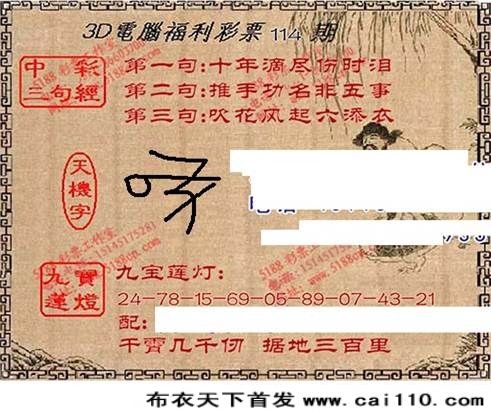 3D電腦福利彩票 114 期
中彩
三句經
第一句:十年滴尽伤时泪
第二句:推手功名非五事
第三句:吹花风起六添衣
天機字
九寶
蓮燈
九宝莲灯:
24-78-15-69-05-89-07-43-21
配:
干霄几千仞 据地三百里
5188 彩票工作室
15145175281
布衣天下首发 www.cai110.com